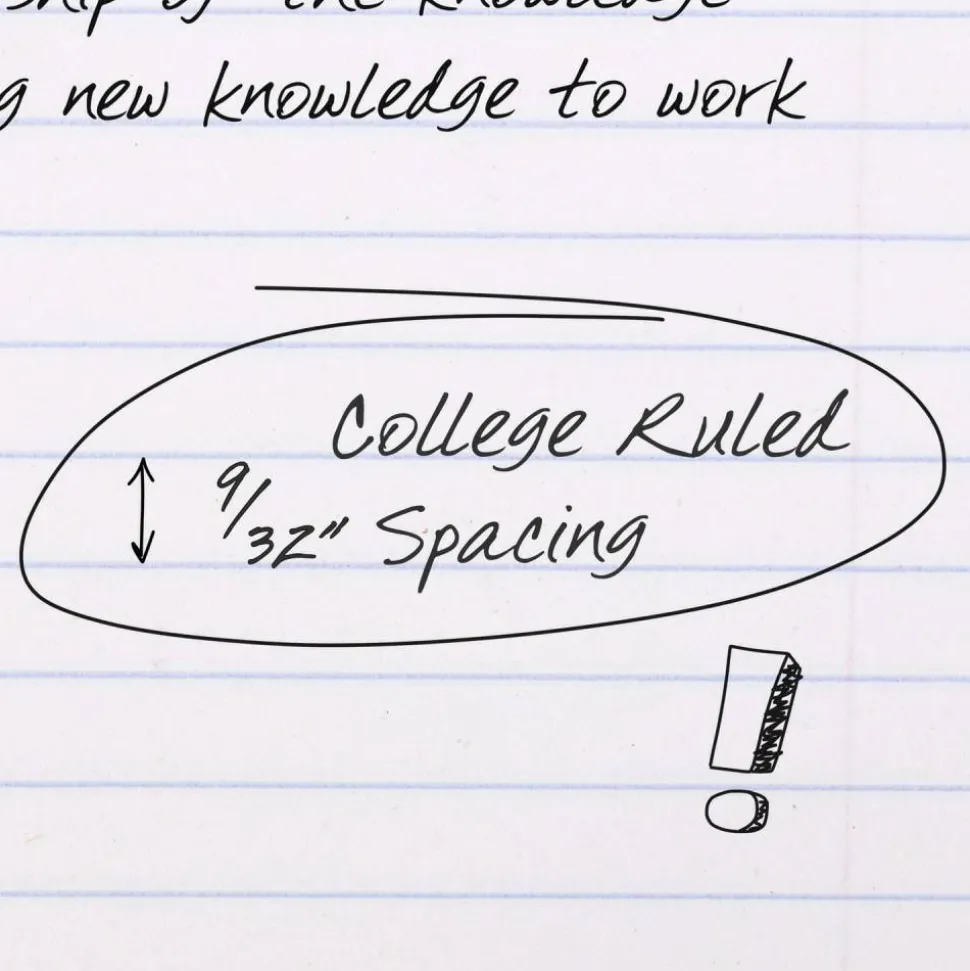 the knowledge
new knowledge to work
College Ruled
9/32" Spacing
!